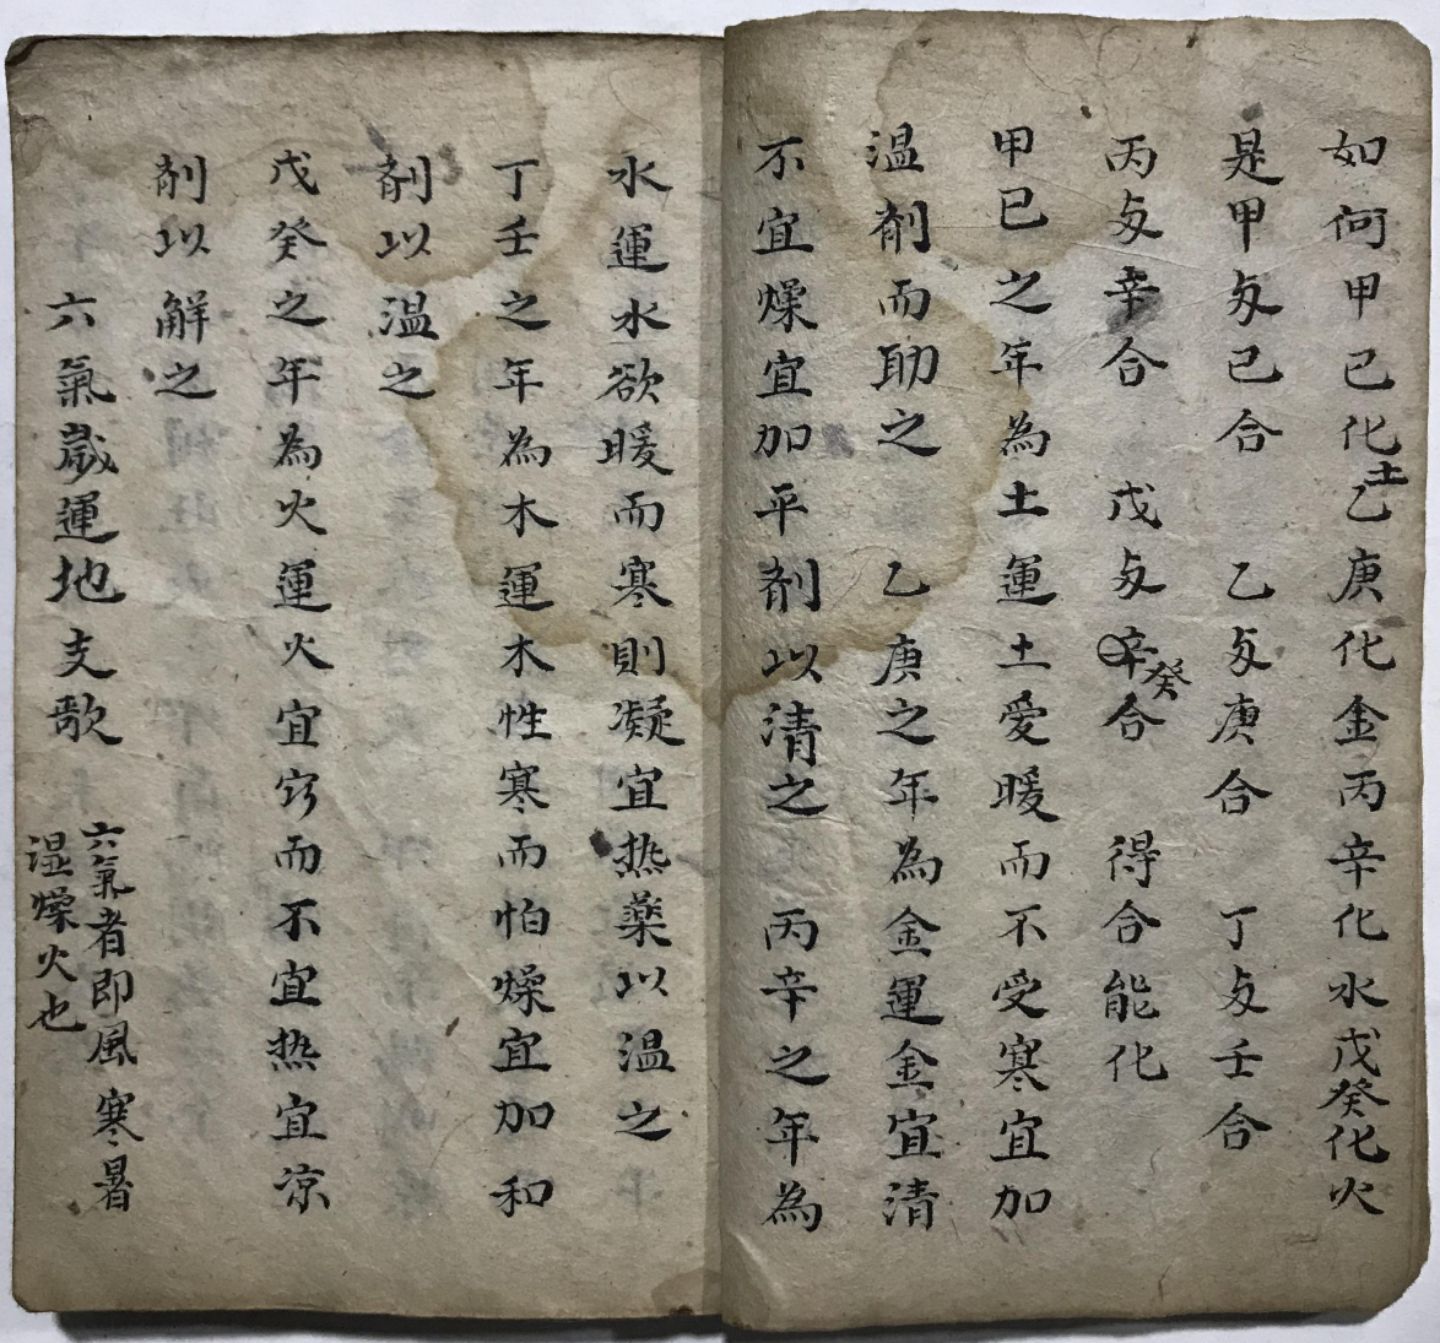 如何甲己化土乙庚化金丙辛化水戊癸化火
是甲与己合　乙与庚合　丁与壬合
丙与辛合　戊与辛癸合　得合能化
甲己之年為土運土愛暖而不受寒宜加
温剤而助之　乙庚之年為金運金宜清
不宜燥宜加平剤以清之　丙辛之年為
水運水欲暖而寒則凝宜热薬以温之
丁壬之年為木運木性寒而怕燥宜加和
剤以温之
戊癸之年為火運火宜而不宜热宜凉
剤以解之
六氣歲運地支歌
六氣者即風寒暑
湿燥火也